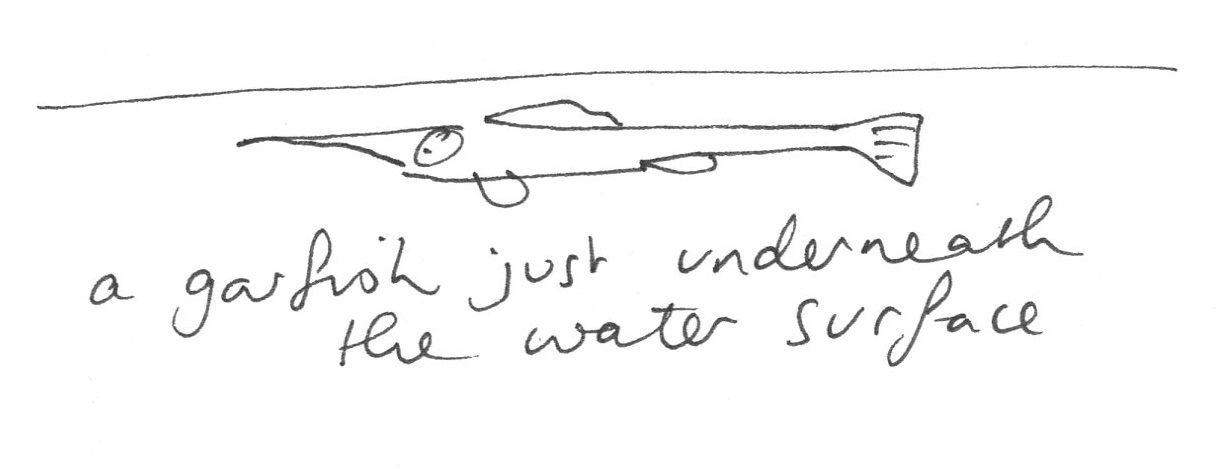 a garfish just underneath
the water surface